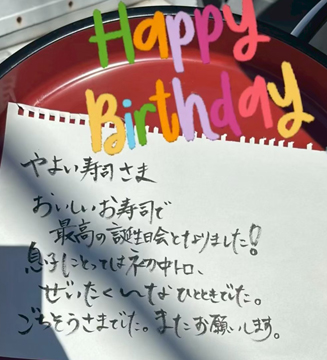 Happy
Birthday
やよい寿司さま
おいしいお寿司で
最高の誕生日会となりました!
息子にとっては初中トロ、
ぜいたく〜なひとときでした。
ごちそうさまでした。またお願いします。